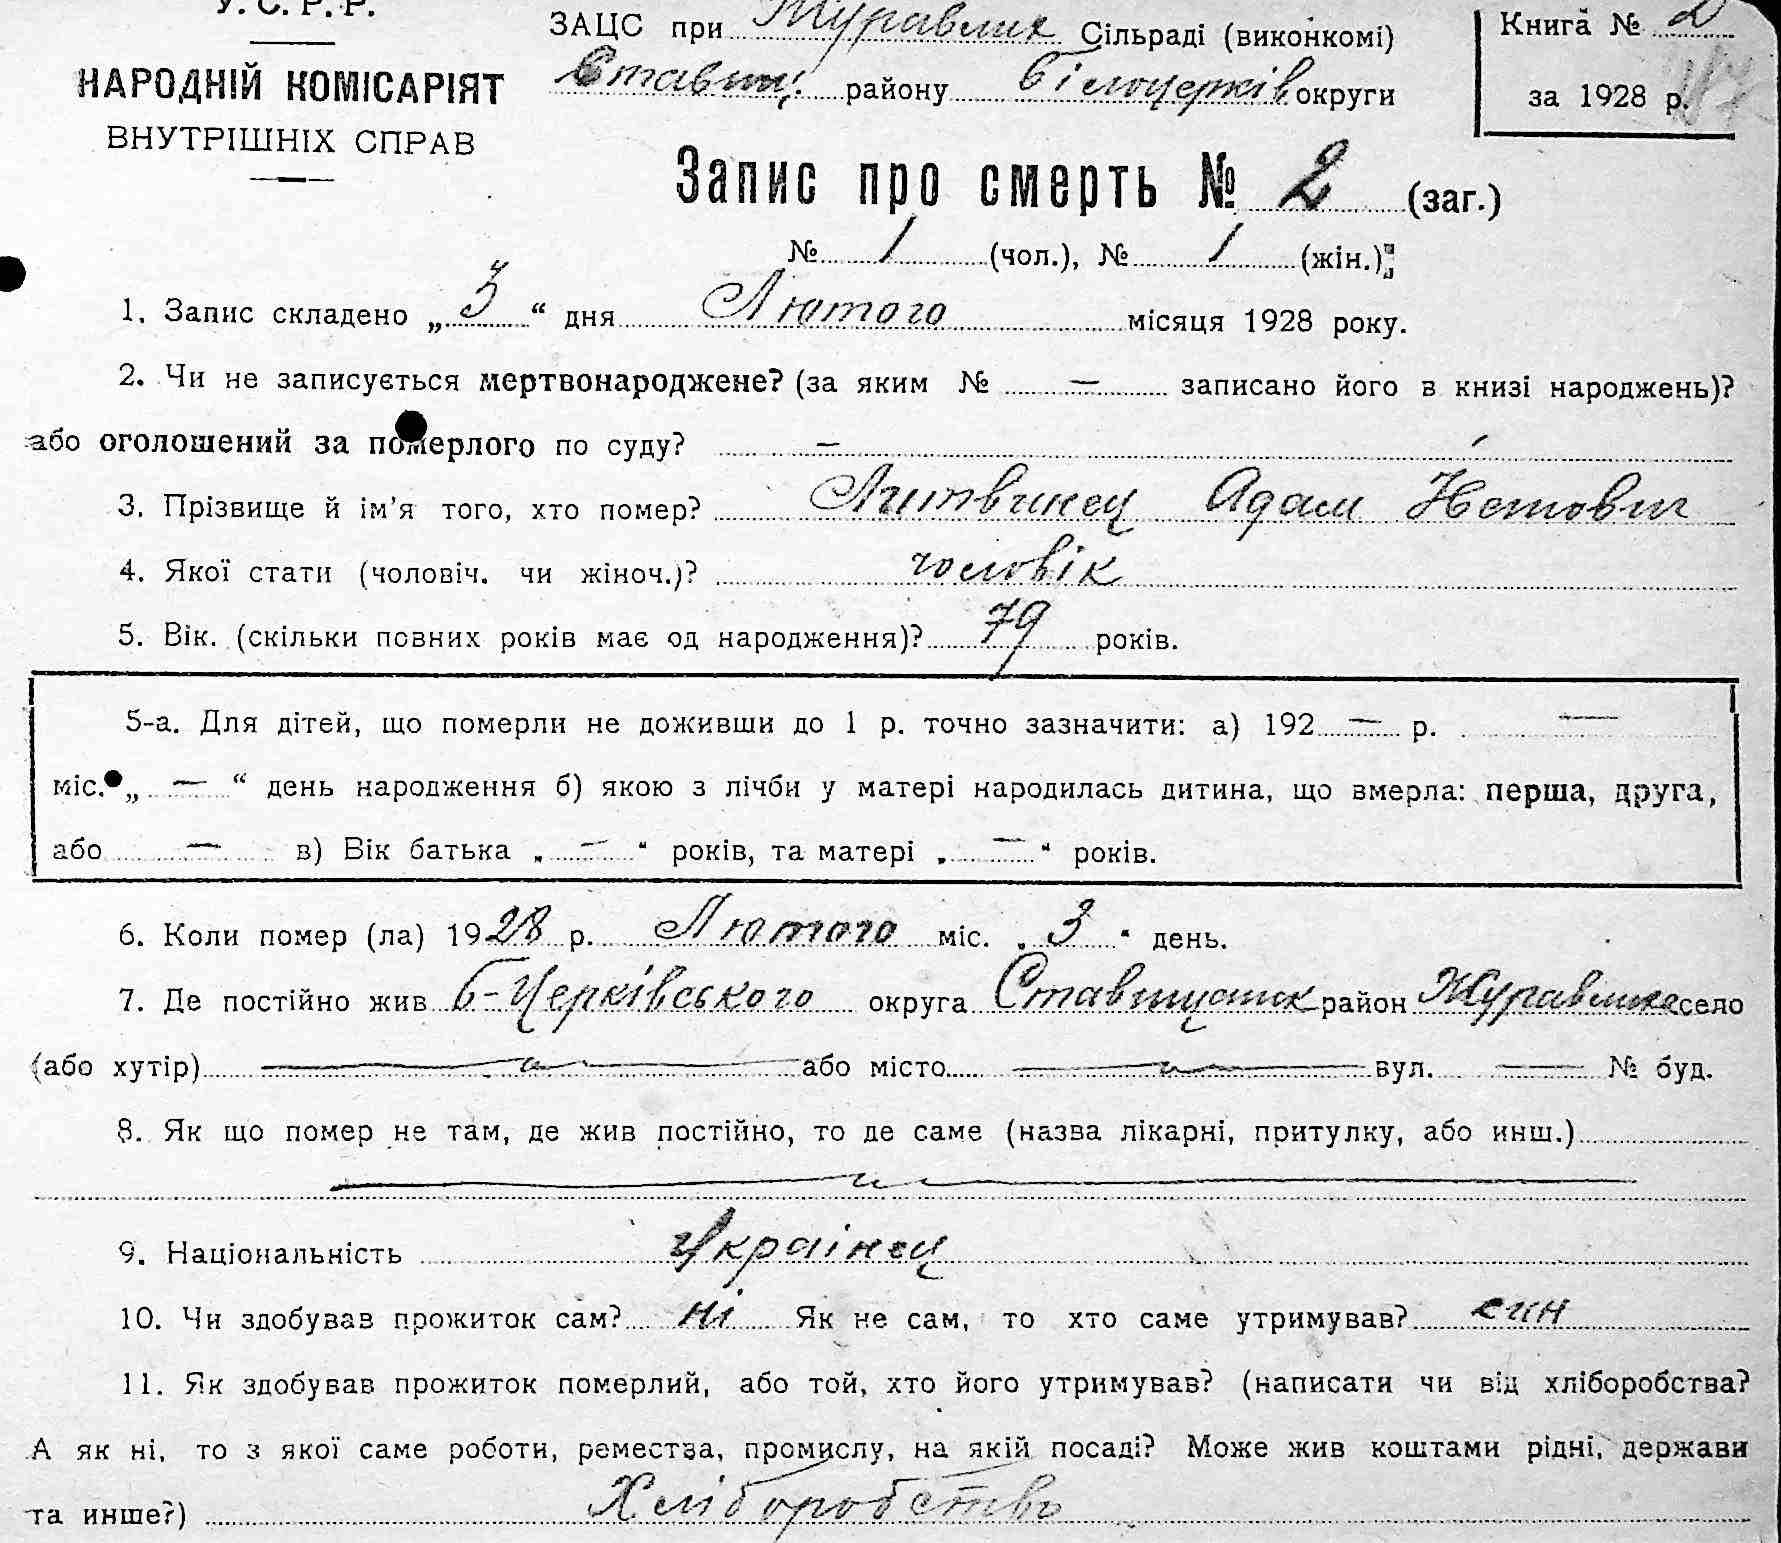 У. С. Р. Р.
НАРОДНІЙ КОМІСАРІЯТ
ВНУТРІШНІХ СПРАВ
ЗАЦС при Журавлик Сільраді (виконкомі)
Ставищ. району Білоцерків. округи
Книга № 2
за 1928 р.
Запис про смерть № 2 (заг.)
№ 1 (чол.), № 1 (жін.)
1. Запис складено „ 3 “ дня Лютого місяця 1928 року.
2. Чи не записується мертвонароджене? (за яким № — записано його в книзі народжень)?
або оголошений за померлого по суду? —
3. Прізвище й ім’я того, хто помер? Литвинец Адам
4. Якої стати (чоловіч. чи жіноч.)? чоловік
5. Вік. (скільки повних років має од народження)? 79 років.
5-а. Для дітей, що померли не доживши до 1 р. точно зазначити: а) 192 — р. —
міс. „ — “ день народження б) якою з лічби у матері народилась дитина, що вмерла: перша, друга,
або — в) Вік батька „ — “ років, та матері „ — “ років.
6. Коли помер (ла) 1928 р. Лютого міс. „ 3 “ день.
7. Де постійно жив Б-Церківського округа Ставищанск район село
(або хутір) — або місто — вул. — № буд.
8. Як що помер не там, де жив постійно, то де саме (назва лікарні, притулку, або инш.)
—
9. Національність Українец
10. Чи здобував прожиток сам? ні Як не сам, то хто саме утримував? син
11. Як здобував прожиток померлий, або той, хто його утримував? (написати чи від хліборобства?
А як ні, то з якої саме роботи, ремества, промислу, на якій посаді? Може жив коштами рідні, держави
та инше?) Хліборобство